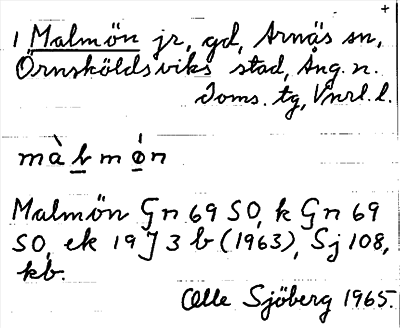 +
1 Malmön jr, gd, Arnäs sn,
Örnsköldsviks stad, Ång. n.
Joms. tg, Vnrl. l.
màl̲mǿ̲n
Malmön Gn 69 SO, k Gn 69
SO, ek 19 J 3 b (1963), Sj 108,
kb.
Olle Sjöberg 1965.